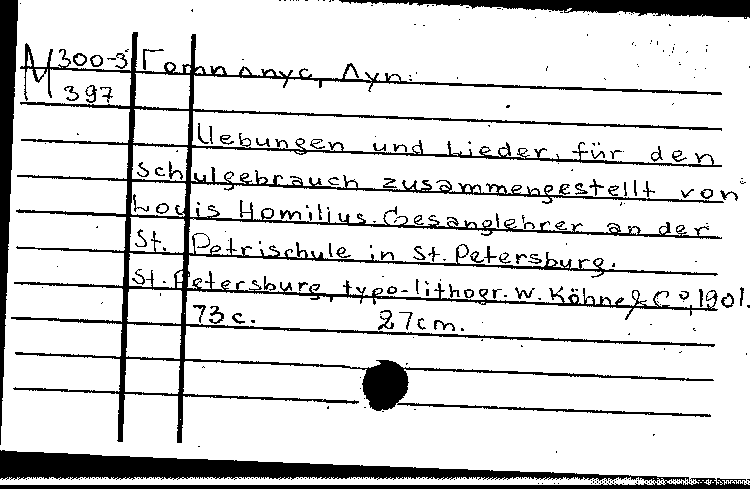 M 300-3 Гомилиус, Луи.
397
Uebungen und Lieder, für den
Schulgebrauch zusammengestellt von
Louis Homilius. Gesanglehrer an der
St. Petrischule in St. Petersburg.
St. Petersburg, typo-lithogr. W. Köhne & Cº, 1901.
73 c. 27 cm.